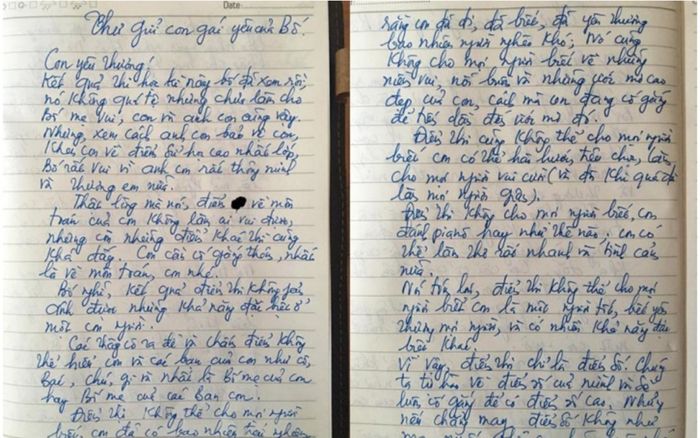 Date
Thư gửi con gái yêu của Bố.
Con yêu thương!
Kết quả thi học kì này bố đã xem rồi,
nó không quá tệ nhưng chưa làm cho
Bố mẹ vui, con và anh con cũng vậy.
Nhưng, xem cách anh con bảo vệ con,
khoe con về điểm sử họ cao nhất lớp,
Bố rất vui vì anh con rất thông minh
và thương em nữa.
Thật lòng mà nói, điểm về môn
toán của con không làm ai vui được,
nhưng con những điểm khác thì cũng
khá đấy. Con cần cố gắng thêm, nhất
là về môn toán, con nhé.
Bố nghĩ, kết quả điểm thi không xác
định được những khả năng đặc biệt ở
mỗi con người.
Các thầy cô ra đề và chấm điểm không
thể hiểu con và các bạn của con như cô,
bác, chú, gì và nhất là Bố mẹ của con
hay Bố mẹ của các bạn con.
Điểm thi không thể cho mọi người
biết, con đã có bao nhiêu trải nghiệm
rằng con đã đi, đã biết, đã yêu thương
bao nhiêu người nghèo khó; Nó cũng
không cho mọi người biết về những
niềm vui, nỗi buồn và những ước mơ cao
đẹp của con, cách mà con đang cố gắng
để tiến đến với mơ đó.
Điểm thi cũng không thể cho mọi người
biết con có thể hài hước, tiếu chọc, làm
cho mọi người vui cười (và đôi khi quá đà
làm mọi người giận).
Điểm thi không cho mọi người biết, con
đánh piano hay như thế nào. con có
thể làm thơ rất nhanh và tình cảm
nữa.
Nói tóm lại, điểm thi không thể cho mọi
người biết con là một người tốt, biết yêu
thương mọi người, và có nhiều khả năng đặc
biệt khác.
Vì vậy, điểm thi chỉ là điểm số. Chúng
ta tự hào về điểm số của mình và sẽ
luôn cố gắng để có điểm số cao. Nhưng
nếu chẳng may, điểm số không như